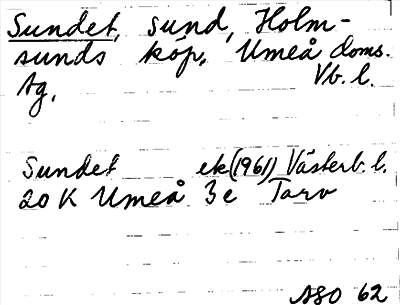 Sundet, sund, Holm-
sunds köp, Umeå doms.
tg, Vb. l.
Sundet ek (1961) Västerb. l.
20 K Umeå 3 c Tarv
ASO 62